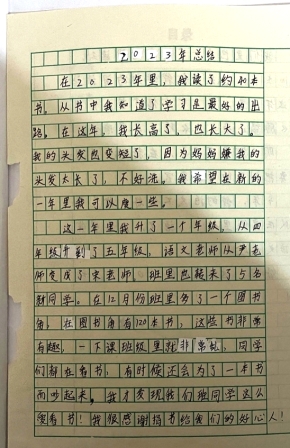 2023年总结
在2023年里，我读了约40本
书。从书中我知道了学习是最好的出
路。在这年，我长高了，也长大了。
我的头发也变短了，因为妈妈嫌我的
头发太长了，不好洗。我希望在新的
一年里我可以瘦一些。
这一年里我升了一个年级。从四
年级升到了五年级，语文老师从尹老
师变成了宋老师，班里也转来了5名
新同学。在12月份班里多了一个图书
角，在图书角有120本书，这些书非常
有趣，一下课班级里就非常乱，同学
们都在看书，有时候还会为了一本书
而吵起来，我才发现我们班同学这么
爱看书！我很感谢捐书给我们的好心人！